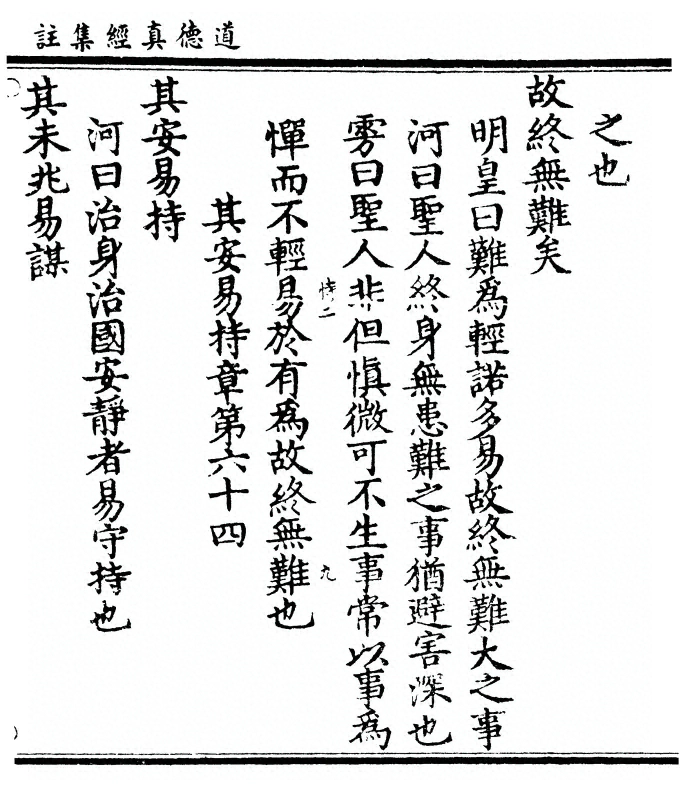 道德真經集註
之也
故終無難矣
明皇曰難爲輕諾多易故終無難大之事
河曰聖人終身無患難之事猶避害深也
雱曰聖人非但愼微可不生事常以事爲
憚而不輕易於有爲故終無難也
恃二
九
其安易持章第六十四
其安易持
河曰治身治國安靜者易守持也
其未兆易謀